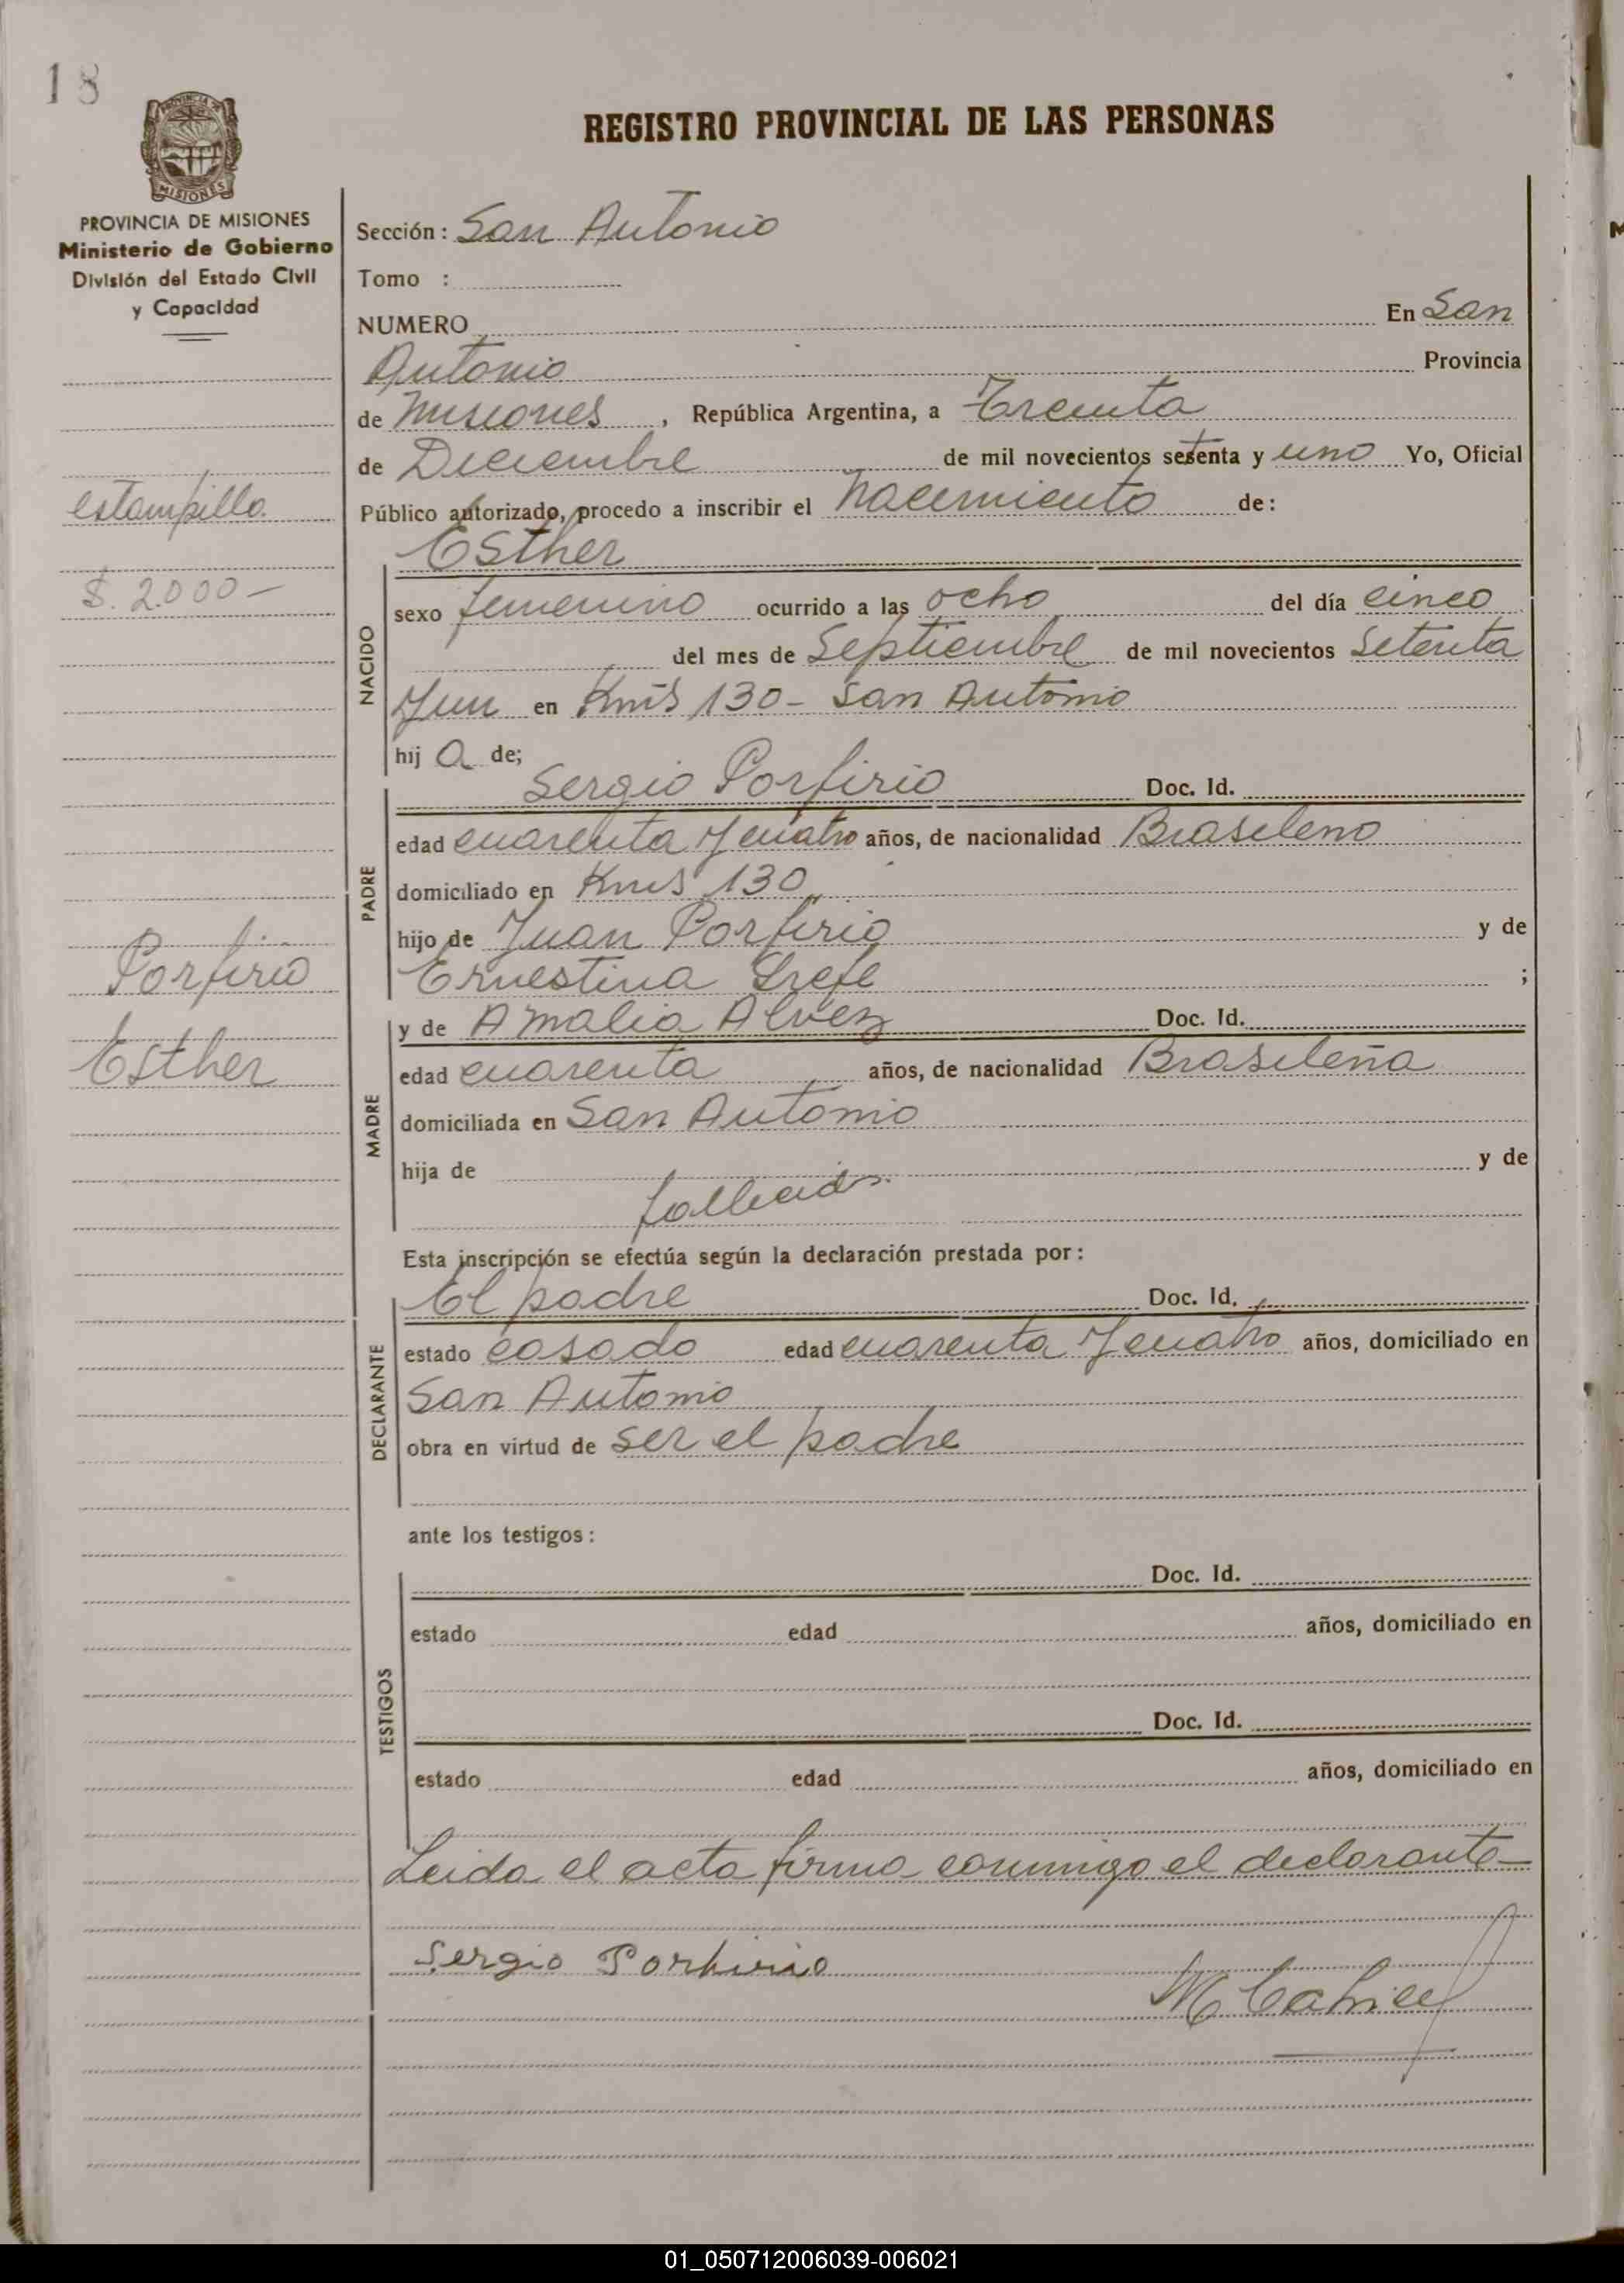 18
PROVINCIA DE
MISIONES
REGISTRO PROVINCIAL DE LAS PERSONAS
PROVINCIA DE MISIONES
Ministerio de Gobierno
División del Estado Civil
y Capacidad
estampilla
$. 2.000-
Porfirio
Esther
Sección: San Antonio
Tomo :
NUMERO En San
Antonio Provincia
de Misiones, República Argentina, a Treinta
de Diciembre de mil novecientos setenta y uno Yo, Oficial
Público autorizado, procedo a inscribir el nacimiento de:
NACIDO
Esther
sexo femenino ocurrido a las ocho del día cinco
del mes de Septiembre de mil novecientos Setenta
y un en Kms 130 - San Antonio
hij a de;
PADRE
Sergio Porfirio Doc. Id.
edad cuarenta y cuatro años, de nacionalidad Brasileno
domiciliado en Kms 130
hijo de Juan Porfirio y de
Ernestina ;
MADRE
y de Amalia Alvez Doc. Id.
edad cuarenta años, de nacionalidad Brasileña
domiciliada en San Antonio
hija de y de
fallecidos.
Esta inscripción se efectúa según la declaración prestada por:
DECLARANTE
El padre Doc. Id.
estado casado edad cuarenta y cuatro años, domiciliado en
San Antonio
obra en virtud de ser el padre
ante los testigos:
TESTIGOS
Doc. Id.
estado edad años, domiciliado en
Doc. Id.
estado edad años, domiciliado en
Leida el acta firma conmigo el declarante
Sergio Porfirio
01_050712006039-006021